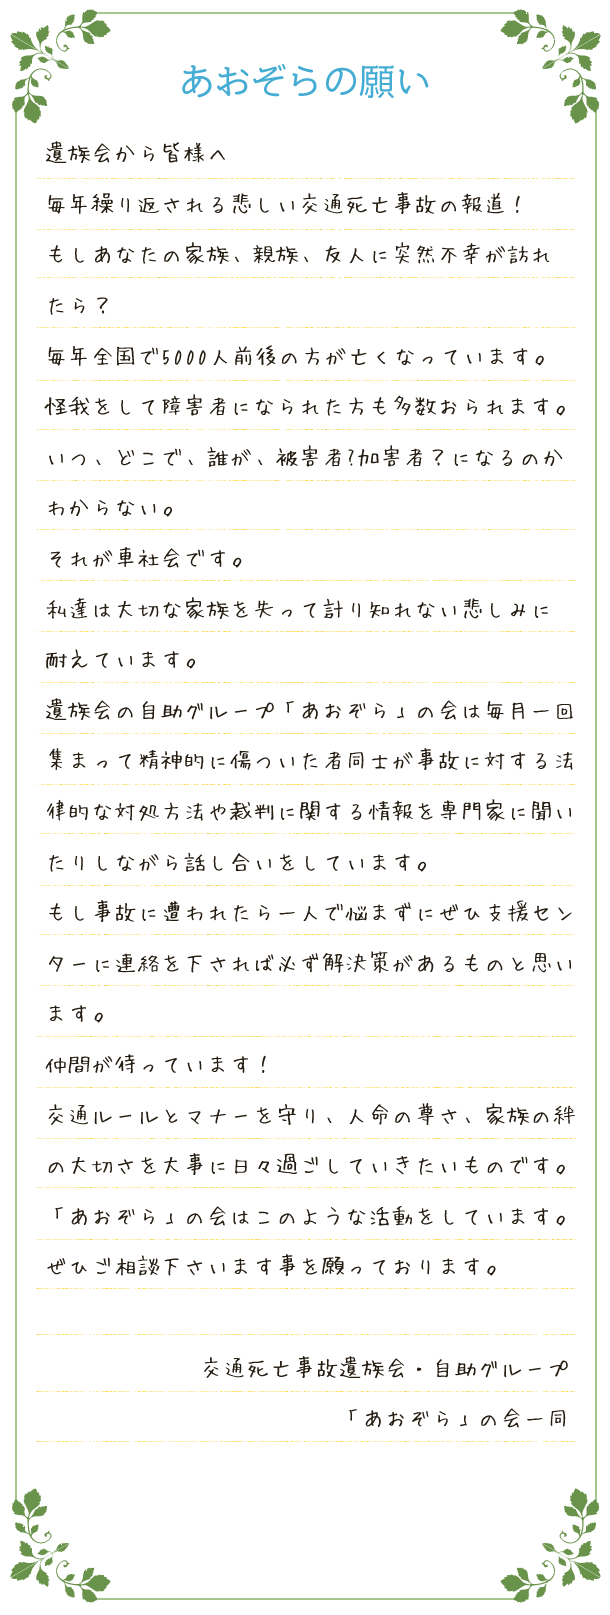 あおぞらの願い
遺族会から皆様へ
毎年繰り返される悲しい交通死亡事故の報道！
もしあなたの家族、親族、友人に突然不幸が訪れ
たら？
毎年全国で5000人前後の方が亡くなっています。
怪我をして障害者になられた方も多数おられます。
いつ、どこで、誰が、被害者?加害者？になるのか
わからない。
それが車社会です。
私達は大切な家族を失って計り知れない悲しみに
耐えています。
遺族会の自助グループ「あおぞら」の会は毎月一回
集まって精神的に傷ついた者同士が事故に対する法
律的な対処方法や裁判に関する情報を専門家に聞い
たりしながら話し合いをしています。
もし事故に遭われたら一人で悩まずにぜひ支援セン
ターに連絡を下されば必ず解決策があるものと思い
ます。
仲間が待っています！
交通ルールとマナーを守り、人命の尊さ、家族の絆
の大切さを大事に日々過ごしていきたいものです。
「あおぞら」の会はこのような活動をしています。
ぜひご相談下さいます事を願っております。
交通死亡事故遺族会・自助グループ
「あおぞら」の会一同